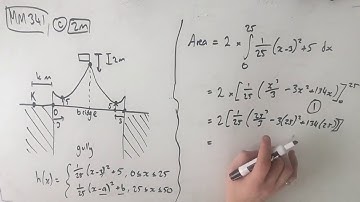 MM341, © 2m
2m
4m
K
O
5
5
3
3
bridge
gully
h(x) = { 1/25 (x-3)² + 5, 0 ≤ x ≤ 25
1/25 (x-a)² + b, 25 ≤ x ≤ 50
Area = 2 × ∫₀²⁵ 1/25 (x-3)² + 5 dx
= 2 × [1/25 (x³/3 - 3x² + 134x)]₀²⁵
①
= 2[1/25 (
- 3(25)² + 134(25)
=